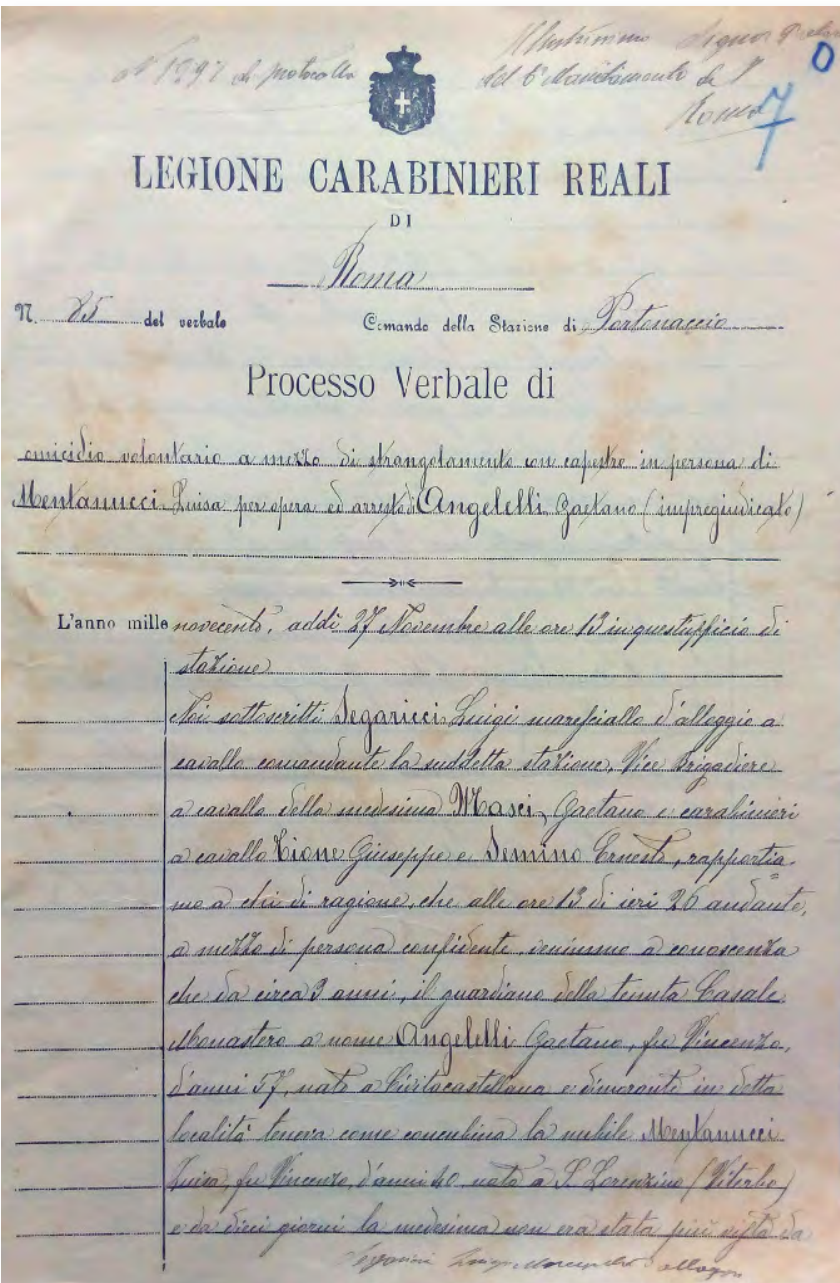 N 1292 di protocollo
Illustrissimo Signor Pretore
del 6° Mandamento di
Roma
0
7
LEGIONE CARABINIERI REALI
DI
Roma
N. 85 del verbale Comando della Stazione di Portonaccio
Processo Verbale di
omicidio volontario a mezzo di strangolamento con capestro in persona di
Mentanucci Luisa per opera ed arresto di Angelelli Gaetano (impregiudicato)
L'anno mille novecento, addì 27 Novembre alle ore 13 in quest'ufficio di
stazione
Noi sottoscritti Segaricci Luigi maresciallo d'alloggio a
cavallo comandante la suddetta stazione, Vice Brigadiere
a cavallo della medesima Masci Gaetano e carabinieri
a cavallo Tione Giuseppe e Semino Ernesto, rapportia-
mo a chi di ragione, che alle ore 13 di ieri 26 andante,
a mezzo di persona confidente, venimmo a conoscenza
che da circa 3 anni, il guardiano della tenuta Casale
Monastero a nome Angelelli Gaetano, fu Vincenzo,
d'anni 57, nato a Civitacastellana e dimorante in detta
località teneva come concubina la nubile Mentanucci
Luisa, fu Vincenzo, d'anni 40, nata a S. Lorenzino (Viterbo)
e da dieci giorni la medesima non era stata più vista da
Luigi